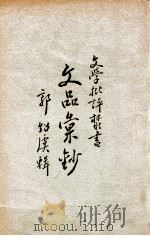 文學批評叢書
文品彙鈔
郭紹虞輯